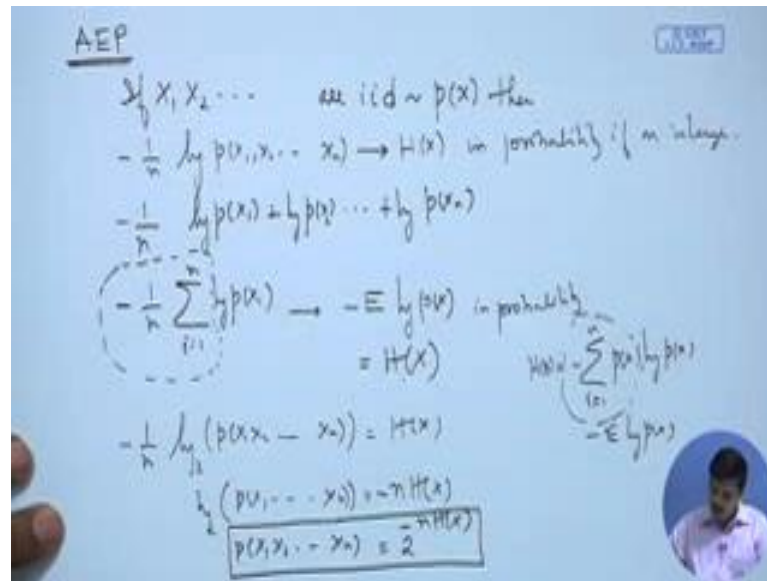 AEP
If X₁ X₂ ... are iid ~ p(x) then
- 1/n log p(x₁, x₂ ... xₙ) → H(x) in probability if n is large.
- 1/n log p(x₁) + log p(x₂) ... + log p(xₙ)
- 1/n ∑ᵢ₌₁ⁿ log p(xᵢ) → - E log p(x) in probability
= H(X)
H(x) = - ∑ᵢ₌₁ⁿ p(x) log p(x)
- E log p(x)
- 1/n log₂ (p(x₁x₂ — xₙ)) = H(x)
log₂ (p(x₁ - - - xₙ)) = -nH(x)
p(x₁x₂ - - xₙ) = 2^-nH(x)